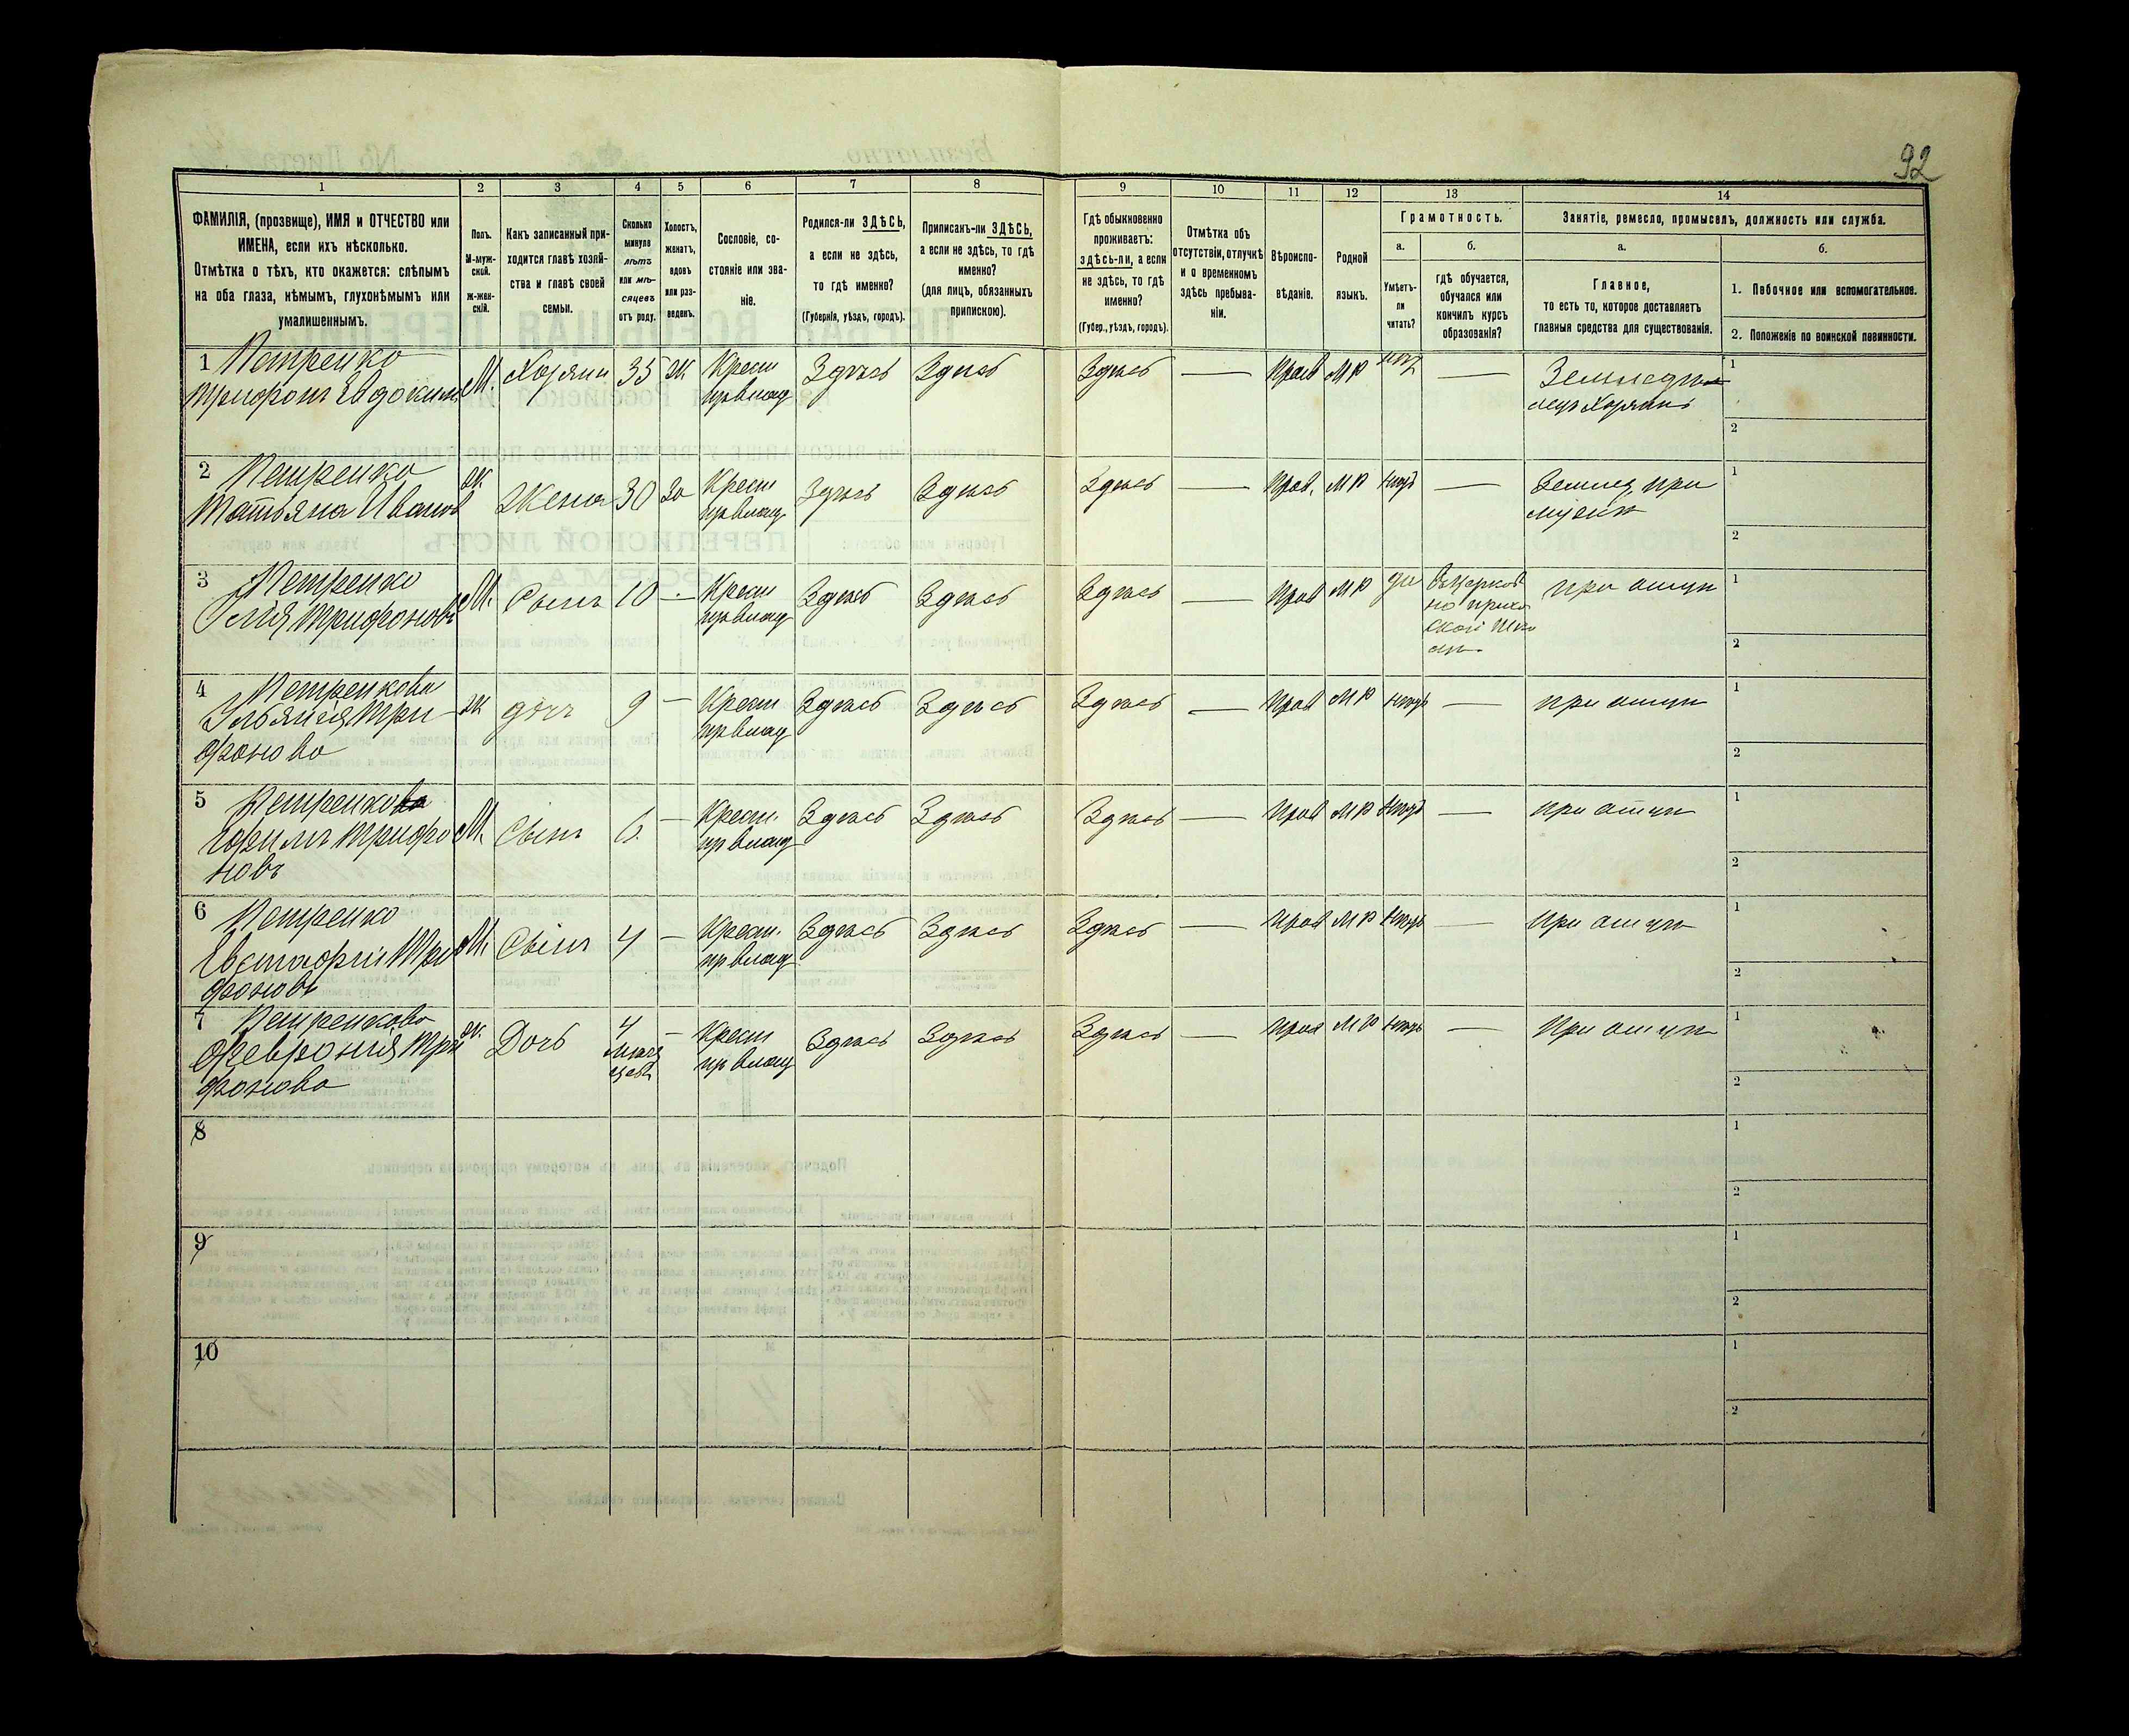 92
1 2 3 4 5 6 7 8 9 10 11 12 13 14
ФАМИЛІЯ, (прозвище), ИМЯ и ОТЧЕСТВО или
ИМЕНА, если ихъ нѣсколько.
Отмѣтка о тѣхъ, кто окажется: слѣпымъ
на оба глаза, нѣмымъ, глухонѣмымъ или
умалишеннымъ.
Полъ.
М-муж-
ской.
Ж-жен-
скій.
Какъ записанный при-
ходится главѣ хозяй-
ства и главѣ своей
семьи.
Сколько
минуло
лѣтъ
или мѣ-
сяцевъ
отъ роду.
Холостъ,
женатъ,
вдовъ
или раз-
веденъ.
Сословіе, со-
стояніе или зва-
ніе.
Родился-ли ЗДѢСЬ,
а если не здѣсь,
то гдѣ именно?
(Губернія, уѣздъ, городъ).
Приписанъ-ли ЗДѢСЬ,
а если не здѣсь, то гдѣ
именно?
(для лицъ, обязанныхъ
припискою).
Гдѣ обыкновенно
проживаетъ:
здѣсь-ли, а если
не здѣсь, то гдѣ
именно?
(Губер., уѣздъ, городъ).
Отмѣтка объ
отсутствіи, отлучкѣ
и о временномъ
здѣсь пребыва-
ніи.
Вѣроиспо-
вѣданіе.
Родной
языкъ.
Грамотность.
а.
Умѣетъ-
ли
читать?
б.
гдѣ обучается,
обучался или
кончилъ курсъ
образованія?
Занятіе, ремесло, промыселъ, должность или служба.
а.
Главное,
то есть то, которое доставляетъ
главныя средства для существованія.
б.
1. Побочное или вспомогательное.
2. Положеніе по воинской повинности.
1 Петренко
Трифонъ Евдоким
М.
35
Ж
Крест
Здѣсь
Здѣсь
Здѣсь
—
Прав
МР
—
1
2
2 Петренко
Татьяна Иванов
Ж.
Жена
30
За
Крест
Здѣсь
Здѣсь
Здѣсь
—
Прав.
МР
—
1
2
3 Петренко
Илія Трифоновъ
М.
Сынъ
10
—
Крест
Здѣсь
Здѣсь
Здѣсь
—
Прав
МР
да
при отцѣ
1
2
4 Петренкова
Ульянія Три
фонова
Ж
дочь
9
—
Крест
Здѣсь
Здѣсь
Здѣсь
—
Прав
МР
нѣтъ
—
при отцѣ
1
2
5 Петренко
Трифо
новъ
М.
Сынъ
6.
—
Крест.
Здѣсь
Здѣсь
Здѣсь
—
Прав
МР
нѣтъ
—
при отцѣ
1
2
6 Петренко
Евстафій Три
фоновъ
М.
Сынъ
4
—
Крест.
Здѣсь
Здѣсь
Здѣсь
—
Прав
МР
нѣтъ
—
при отцѣ
1
2
7 Петренкова
Февронія Три
фонова
Ж.
Дочь
4
—
Крест
Здѣсь
Здѣсь
Здѣсь
—
Прав
МР
нѣтъ
—
При отцѣ
1
2
8
1
2
9
1
2
10
1
2